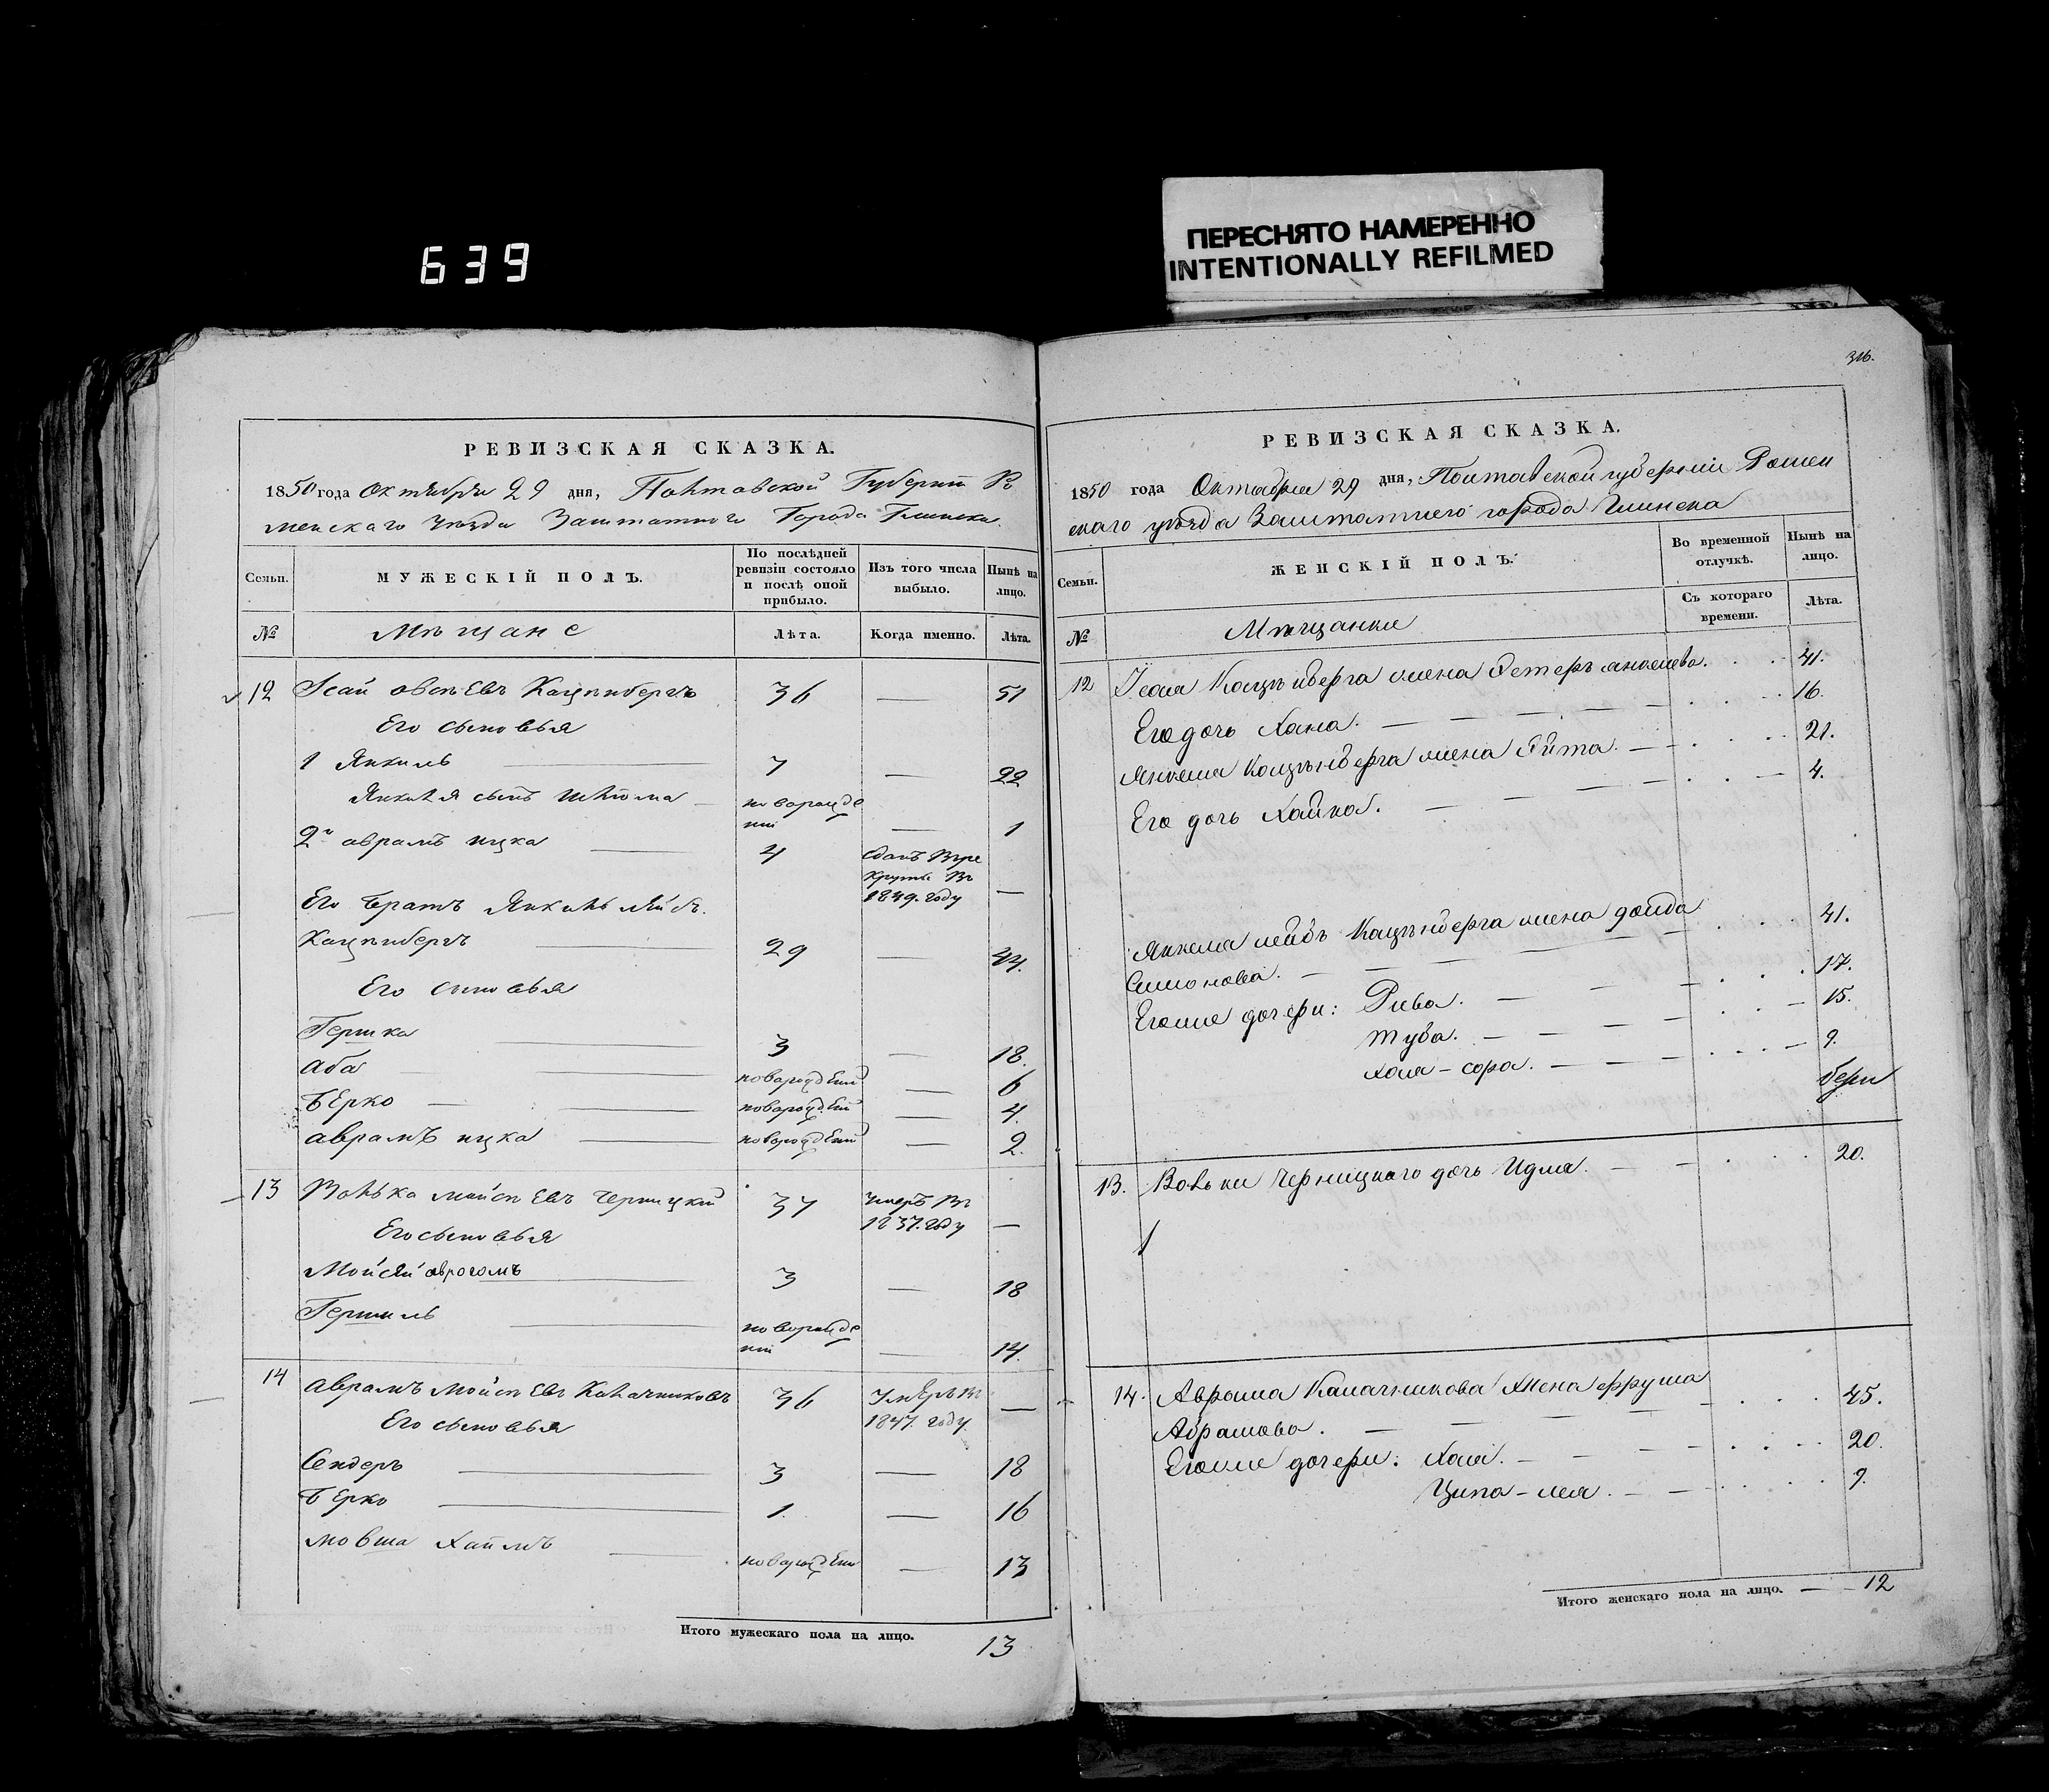 639
ПЕРЕСНЯТО НАМЕРЕННО
INTENTIONALLY REFILMED
РЕВИЗСКАЯ СКАЗКА.
1850 года Октября 29 дня, Полтавской Губернии Ро
менскаго уезда Заштатного Города Глинска.
Семьи. МУЖЕСКІЙ ПОЛЪ. По послѣдней ревизіи состояло и послѣ оной прибыло. Изъ того числа выбыло. Нынѣ на лицо.
№ Мѣщане Лѣта. Когда именно. Лѣта.
12 Исай овсѣевъ Кацынбергъ 36 — 51
Его сыновья
1 Янкиль 7 — 22
Янкиля сынъ новорожде
ній — 1
2й аврамъ ицка 4 сданъ врре
круты въ
1849. году —
Его братъ Янкиль лейбъ
Кацынбергъ 29 — 44.
Его сыновья
Гершка 3 — 18.
аба новорожденій — 6
Берко новорожденій — 4.
аврамъ ицка новорожденій — 2.
13 Волька мойсѣевъ Черницкій 37 умеръ въ
1837. году —
Его сыновья
Мойсей аврогамъ 3 — 18
Гершиль новорожде
ній — 14.
14 аврамъ мойсѣевъ Калачниковъ 36 умеръ въ
1847. году —
Его сыновья
Сендеръ 3 — 18
Берко 1. — 16
мовша Хаимъ новорожденій — 13
Итого мужескаго пола на лицо. 13
316.
РЕВИЗСКАЯ СКАЗКА.
1850 года Октября 29 дня, Полтавской губерніи Ромен
скаго уѣзда Заштатнего города Глинска
Семьи. ЖЕНСКІЙ ПОЛЪ. Во временной отлучкѣ. Нынѣ на лицо.
№ Мѣщанки Съ котораго времени. Лѣта.
12 Исая Кацынберга жена Эстеръ янкелева. 41.
Его дочь Хана. 16.
Янкеля Кацынберга жена Эйта. 21.
Его дочь Хайка. 4.
Янкеля лейбъ Кацынберга жена двейда
Симонова. 41.
Егоже дочери: Рива. 17.
Туба. 15.
Хая-сора. 9.
13. Вольки Черницкаго дочь Идля. 20.
14. Аврама Калачникова жена Фрума
Абрамова. 45.
Егоже дочери: Хая. 20.
Ципа-лея. 9.
Итого женскаго пола на лицо. — 12